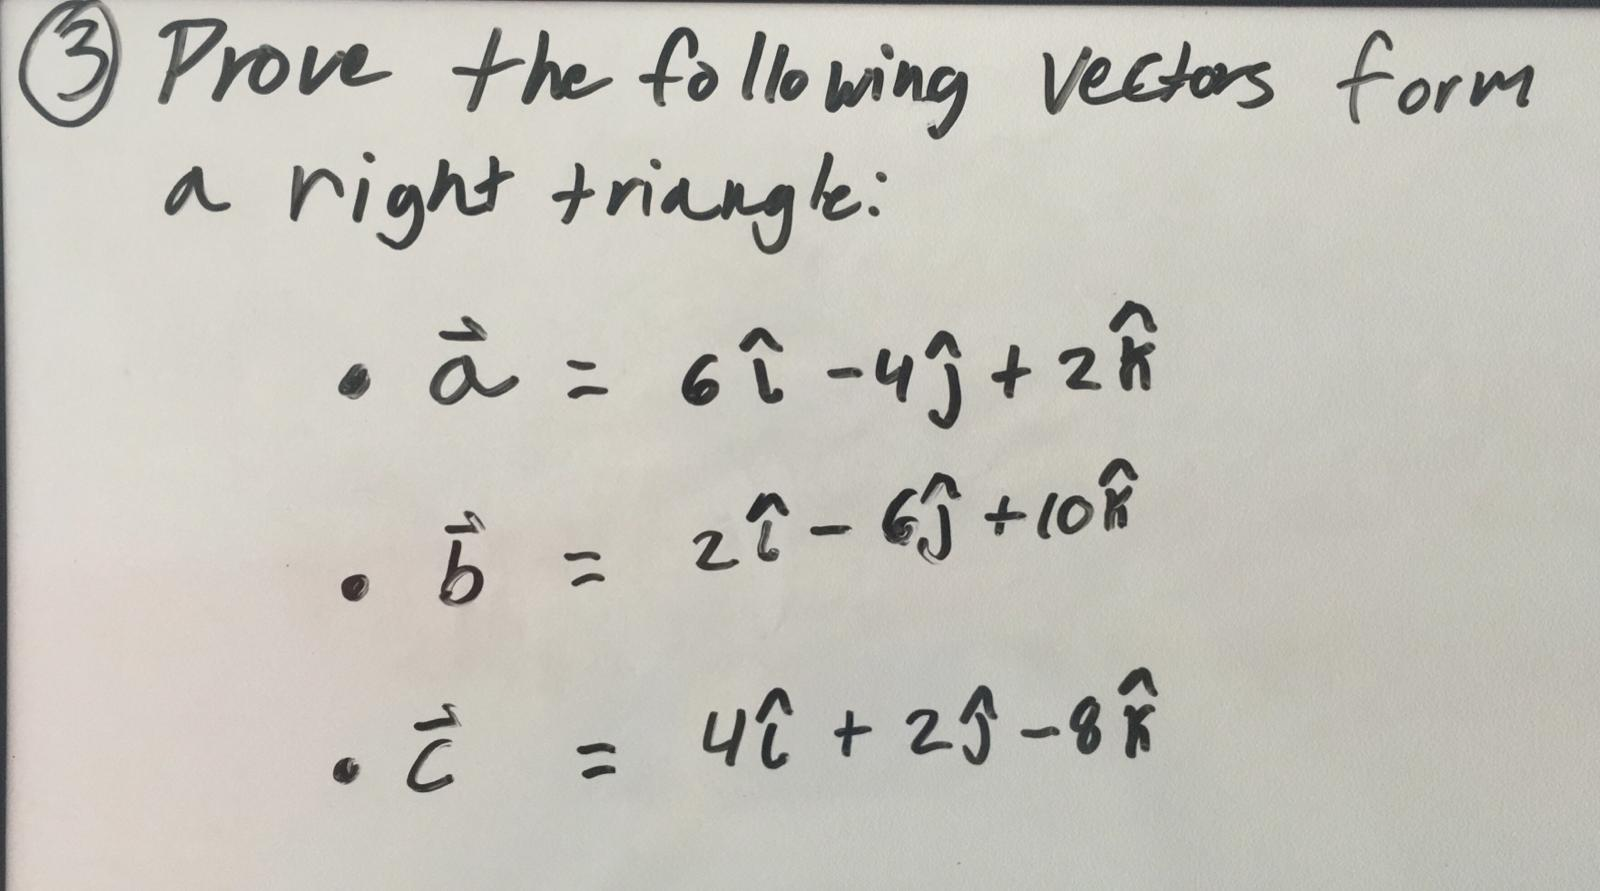 ③ Prove the following vectors form
a right triangle:
• a⃗ = 6î - 4ĵ + 2k̂
• b⃗ = 2î - 6ĵ + 10k̂
• c⃗ = 4î + 2ĵ - 8k̂